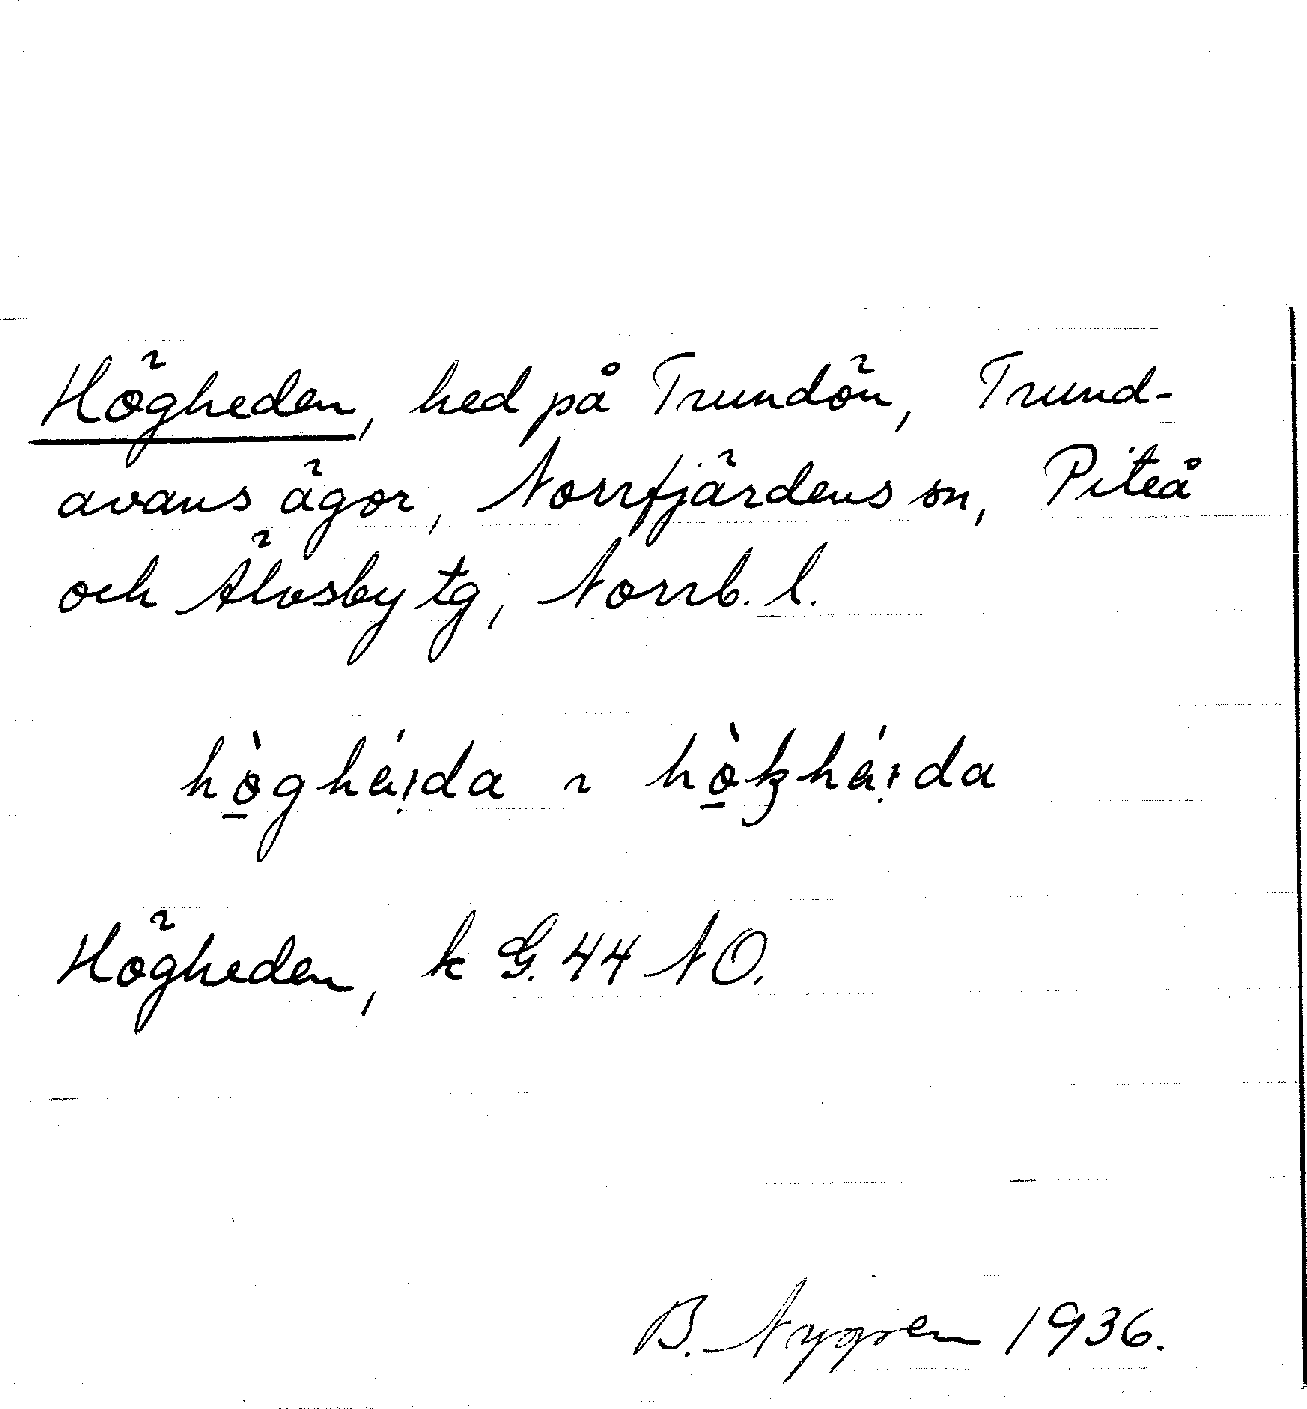 Högheden, hed på Trundön, Trund-
avans ägor, Norrfjärdens sn, Piteå
och Älvsby tg, Norrb. l.
hò̲ghạ́ıda ~ hò̲khạ́ıda
Högheden, k G. 44 NO.
B. Nygren 1936.